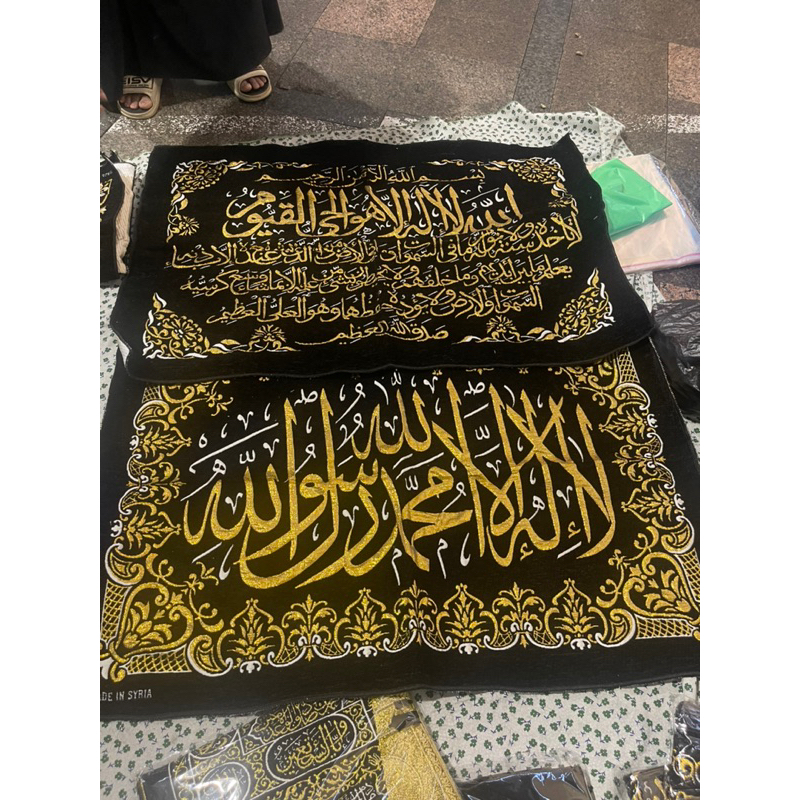 بسم الله الرحمن الرحيم
الله لا إله إلا هو الحي القيوم
لا تأخذه سنة ولا نوم له ما في السموات وما في الأرض من ذا الذي يشفع عنده إلا بإذنه
يعلم ما بين أيديهم وما خلفهم ولا يحيطون بشيء من علمه إلا بما شاء وسع كرسيه
السموات والأرض ولا يؤده حفظهما وهو العلي العظيم
صدق الله العظيم
لا إله إلا الله محمد رسول الله
DE IN SYRIA